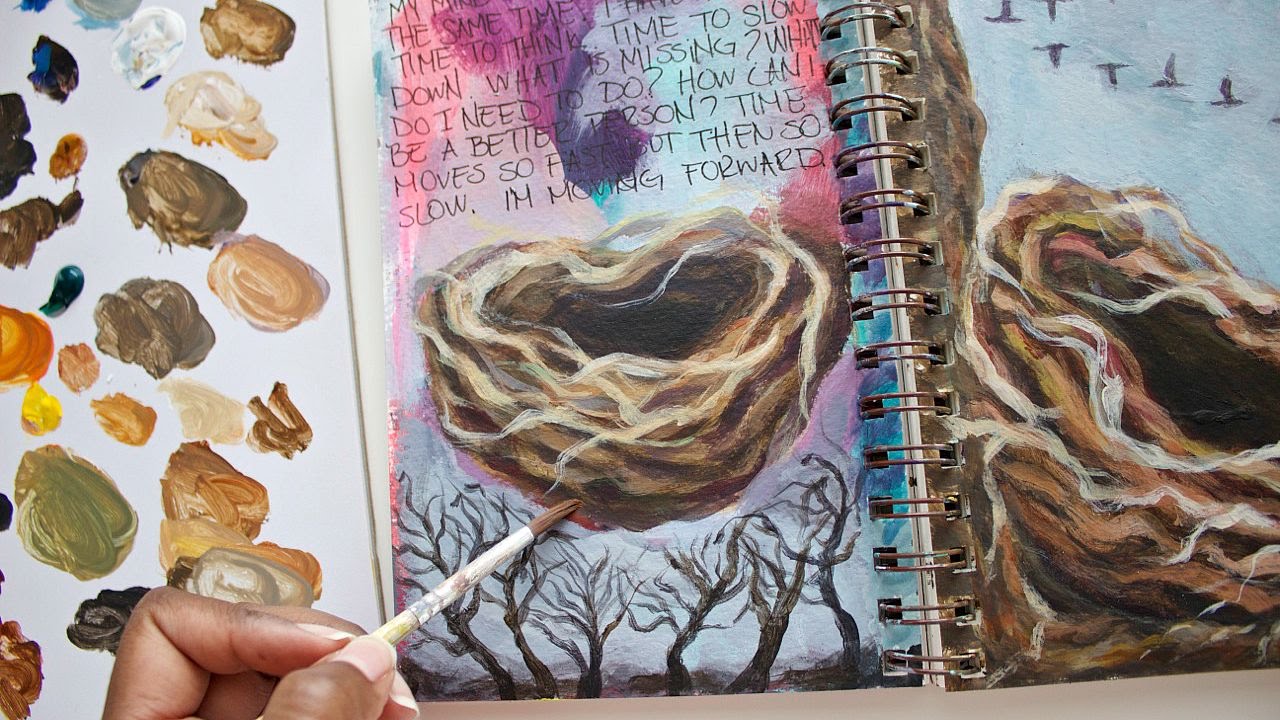 MY MIN
THE SAME TIME. I HAVE
TIME TO THINK, TIME TO SLOW
DOWN WHAT IS MISSING? WHAT
DO I NEED TO DO? HOW CAN I
BE A BETTER PERSON? TIME
MOVES SO FAST BUT THEN SO
SLOW. I'M MOVING FORWARD.